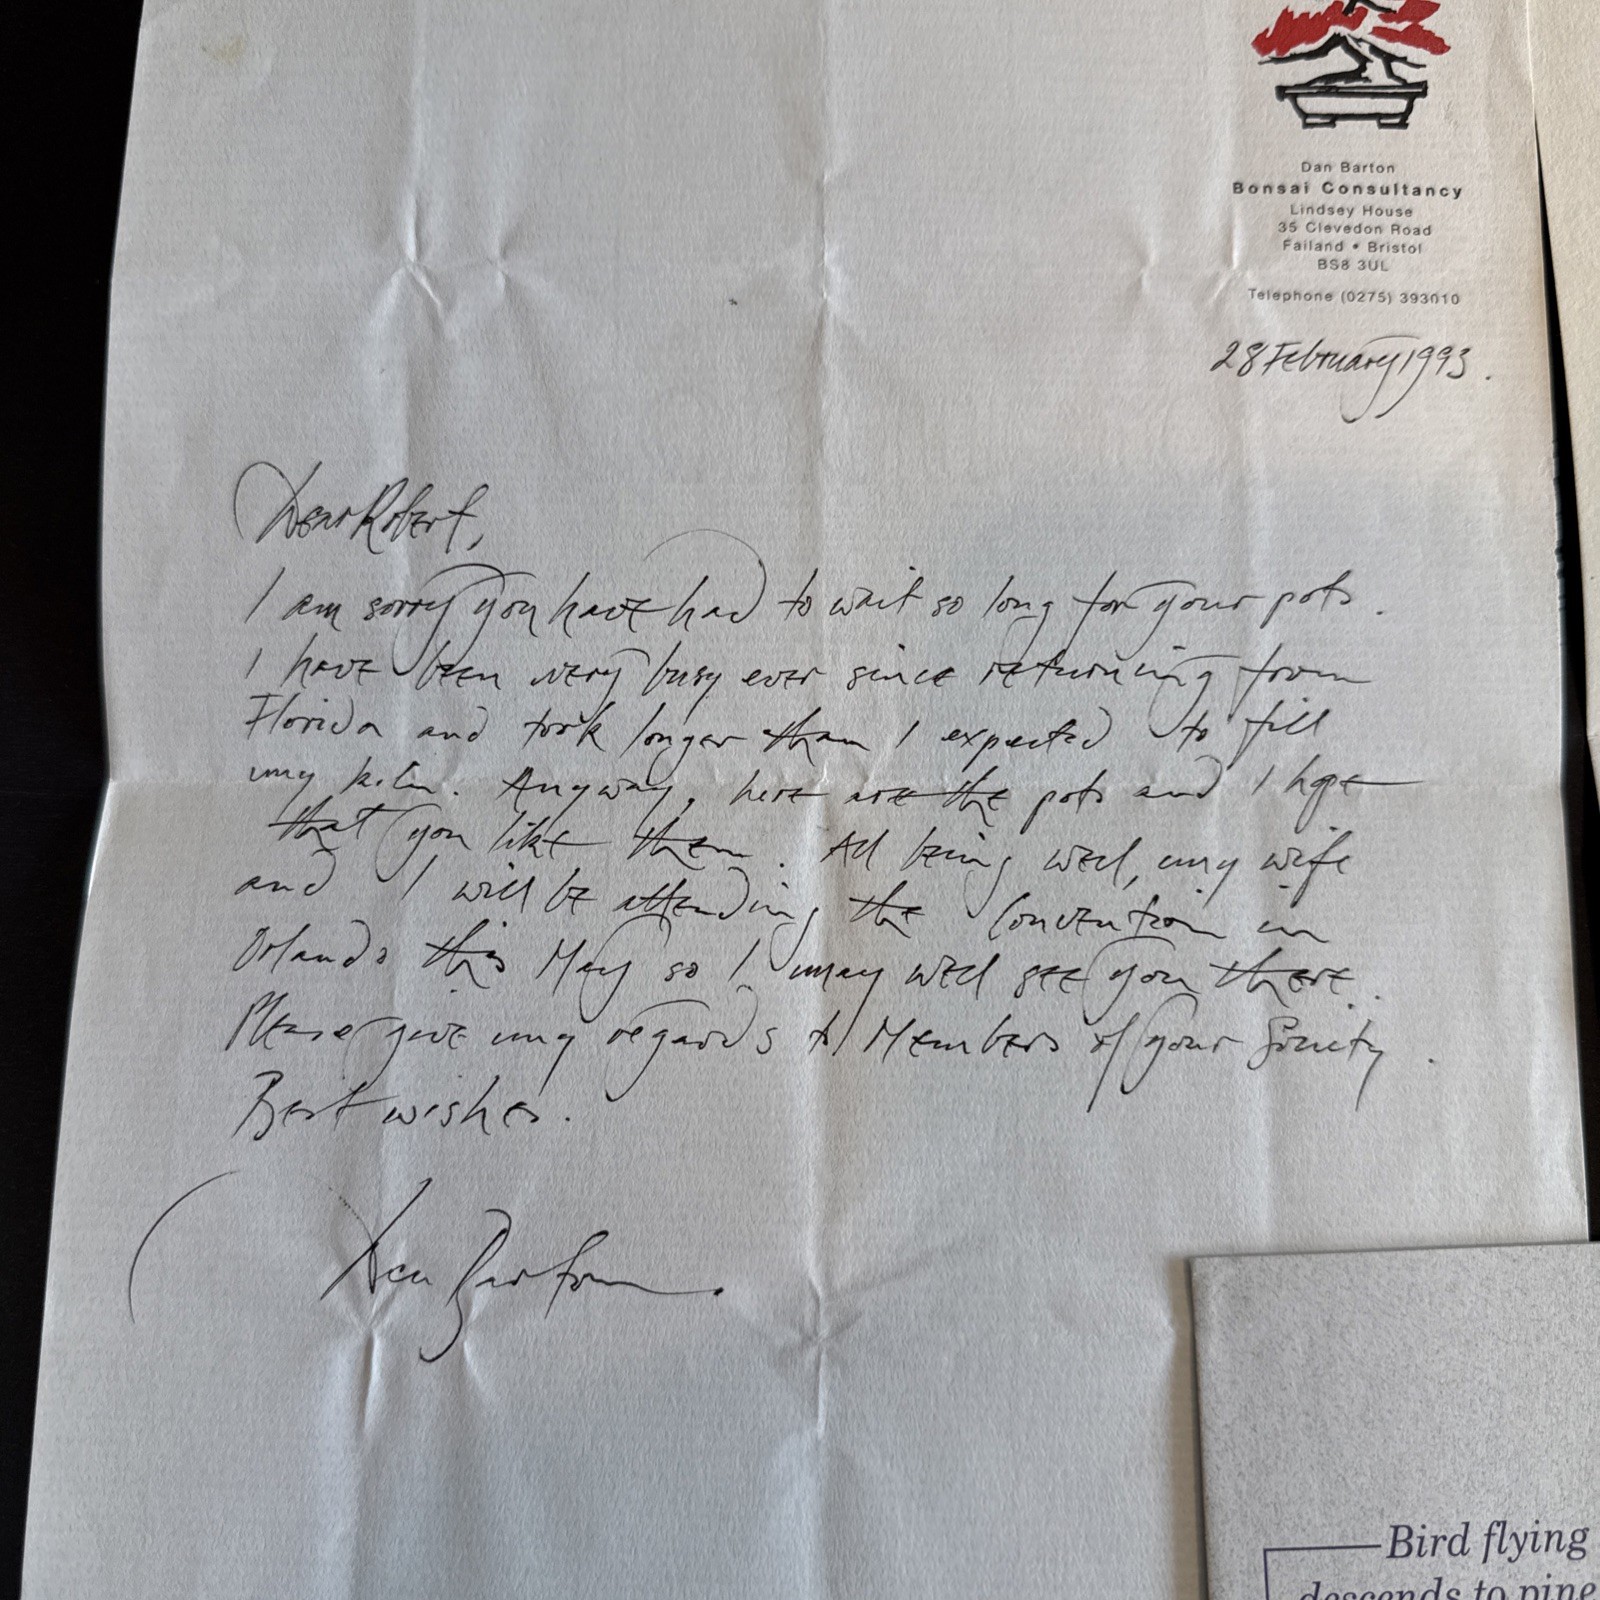 Dan Barton
Bonsai Consultancy
Lindsey House
35 Clevedon Road
Failand • Bristol
BS8 3UL
Telephone (0275) 393010
28 February 1993.
Dear Robert,
I am sorry you have had to wait so long for your pots.
I have been very busy ever since returning from
Florida and took longer than I expected to fill
my kiln. Anyway, here are the pots and I hope
that you like them. All being well, my wife
and I will be attending the Convention in
Orlando this May so I may well see you there.
Please give my regards to Members of your Society.
Best wishes.
Dan Barton.
Bird flying
descends to pine